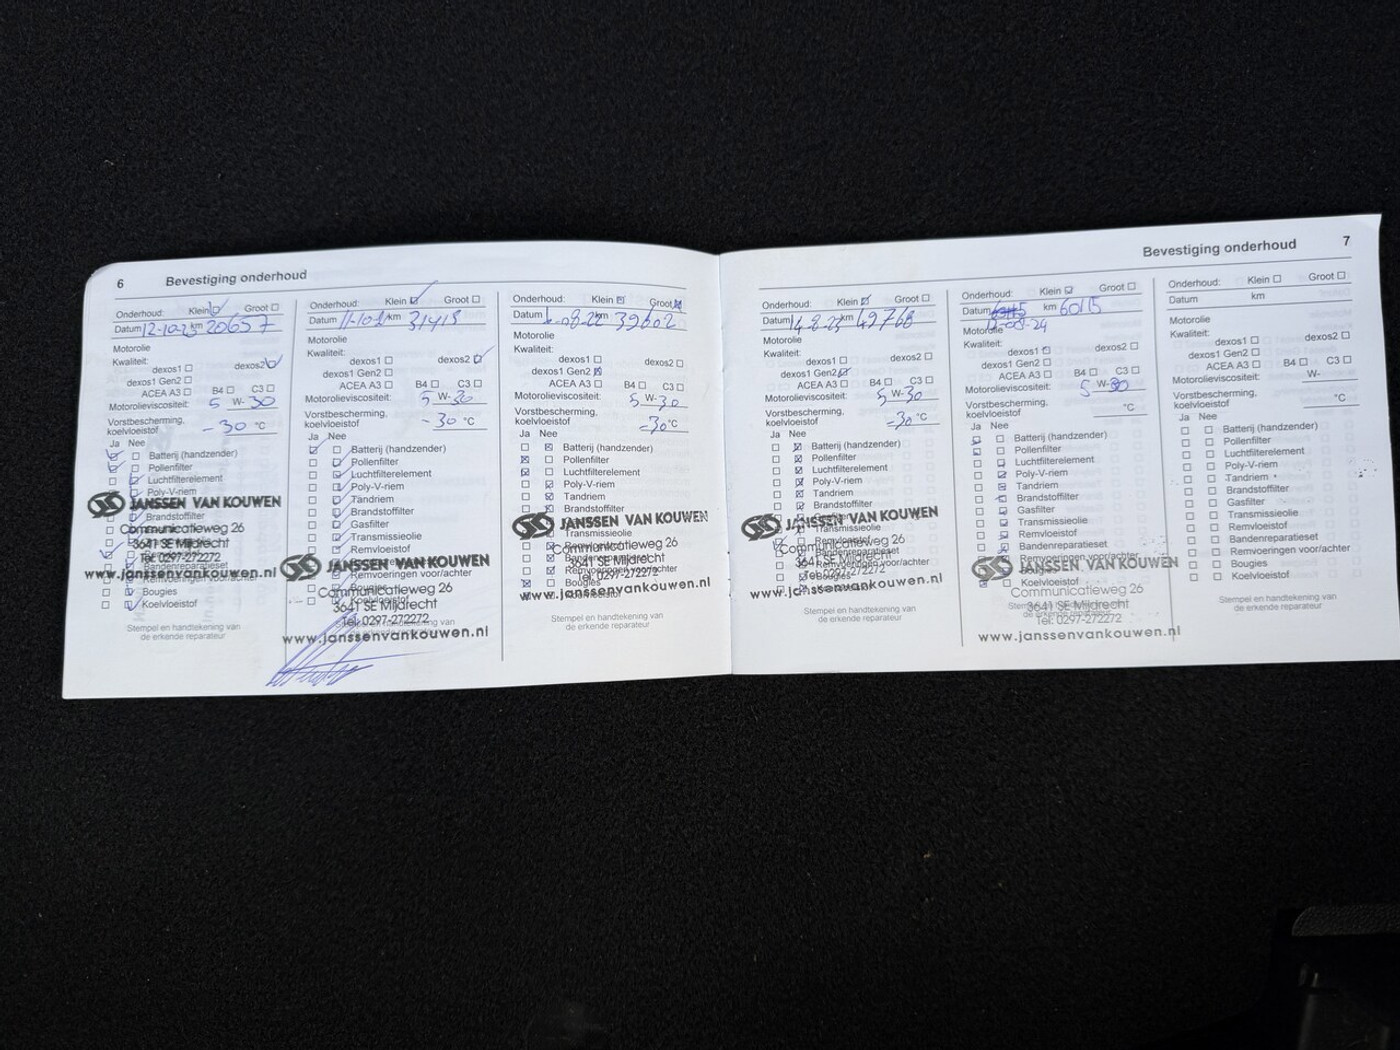 6 Bevestiging onderhoud
Onderhoud: Klein Groot
Datum km 20657
Motorolie
Kwaliteit:
dexos1 dexos2
dexos1 Gen2
ACEA A3 B4 C3
Motorolieviscositeit: 5 W- 30
Vorstbescherming,
koelvloeistof - 30 °C
Ja Nee
Batterij (handzender)
Pollenfilter
Luchtfilterelement
Poly-V-riem
JANSSEN VAN KOUWEN
Brandstoffilter
Communicatieweg 26
3641 SE Mijdrecht
Tel. 0297-272272
www.janssenvankouwen.nl
Bougies
Koelvloeistof
Stempel en handtekening van
de erkende reparateur
Onderhoud: Klein Groot
Datum km 31415
Motorolie
Kwaliteit:
dexos1 dexos2
dexos1 Gen2
ACEA A3 B4 C3
Motorolieviscositeit: 5 W- 30
Vorstbescherming,
koelvloeistof - 30 °C
Ja Nee
Batterij (handzender)
Pollenfilter
Luchtfilterelement
Poly-V-riem
Tandriem
Brandstoffilter
Gasfilter
Transmissieolie
Remvloeistof
JANSSEN VAN KOUWEN
Remvoeringen voor/achter
Bougies
Communicatieweg 26
Koelvloeistof
3641 SE Mijdrecht
Tel. 0297-272272
Stempel en handtekening van
www.janssenvankouwen.nl
Onderhoud: Klein Groot
Datum 39602
Motorolie
Kwaliteit:
dexos1 dexos2
dexos1 Gen2
ACEA A3 B4 C3
Motorolieviscositeit: 5 W- 30
Vorstbescherming,
koelvloeistof -30 °C
Ja Nee
Batterij (handzender)
Pollenfilter
Luchtfilterelement
Poly-V-riem
Tandriem
Brandstoffilter
JANSSEN VAN KOUWEN
Transmissieolie
Remvloeistof
Communicatieweg 26
Bandenreparatieset
3641 SE Mijdrecht
Remvoeringen voor/achter
Tel. 0297-272272
Bougies
www.janssenvankouwen.nl
Koelvloeistof
Stempel en handtekening van
de erkende reparateur
Bevestiging onderhoud 7
Onderhoud: Klein Groot
Datum 14-8-23 km 49768
Motorolie
Kwaliteit:
dexos1 dexos2
dexos1 Gen2
ACEA A3 B4 C3
Motorolieviscositeit: 5 W- 30
Vorstbescherming,
koelvloeistof -30 °C
Ja Nee
Batterij (handzender)
Pollenfilter
Luchtfilterelement
Poly-V-riem
Tandriem
Brandstoffilter
JANSSEN VAN KOUWEN
Transmissieolie
Remvloeistof
Communicatieweg 26
Bandenreparatieset
3641 SE Mijdrecht
Tel. 0297-272272
Bougies
www.janssenvankouwen.nl
Stempel en handtekening van
de erkende reparateur
Onderhoud: Klein Groot
Datum km 60115
Motorolie -08-24
Kwaliteit:
dexos1 dexos2
dexos1 Gen2
ACEA A3 B4 C3
Motorolieviscositeit: 5 W- 30
Vorstbescherming,
koelvloeistof °C
Ja Nee
Batterij (handzender)
Pollenfilter
Luchtfilterelement
Poly-V-riem
Tandriem
Brandstoffilter
Gasfilter
Transmissieolie
Remvloeistof
Bandenreparatieset
Remvoeringen voor/achter
JANSSEN VAN KOUWEN
Bougies
Koelvloeistof
Communicatieweg 26
3641 SE Mijdrecht
de erkende reparateur
Tel. 0297-272272
www.janssenvankouwen.nl
Onderhoud: Klein Groot
Datum km
Motorolie
Kwaliteit:
dexos1 dexos2
dexos1 Gen2
ACEA A3 B4 C3
Motorolieviscositeit: W-
Vorstbescherming,
koelvloeistof °C
Ja Nee
Batterij (handzender)
Pollenfilter
Luchtfilterelement
Poly-V-riem
Tandriem
Brandstoffilter
Gasfilter
Transmissieolie
Remvloeistof
Bandenreparatieset
Remvoeringen voor/achter
Bougies
Koelvloeistof
Stempel en handtekening van
de erkende reparateur